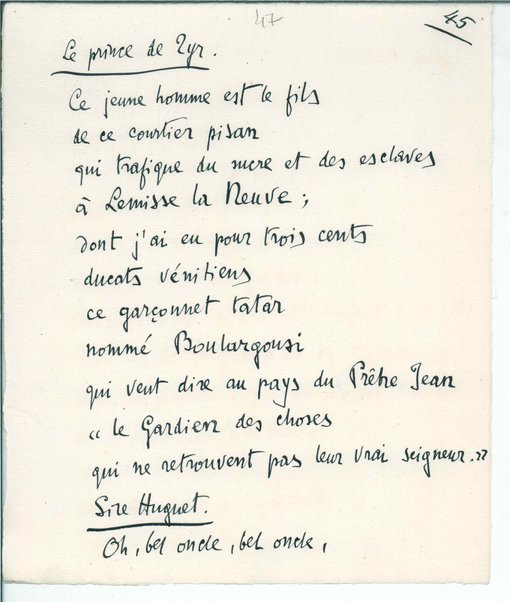 47
45
Le prince de Tyr.
Ce jeune homme est le fils
de ce courtier pisan
qui trafique du sucre et des esclaves
à Lemisse la Neuve ;
dont j'ai eu pour trois cents
ducats vénitiens
ce garçonnet tatar
nommé Boulargousi
qui veut dire au pays du Prêtre Jean
« le Gardien des choses
qui ne retrouvent pas leur vrai seigneur. »
Sire Huguet.
Oh, bel oncle, bel oncle,